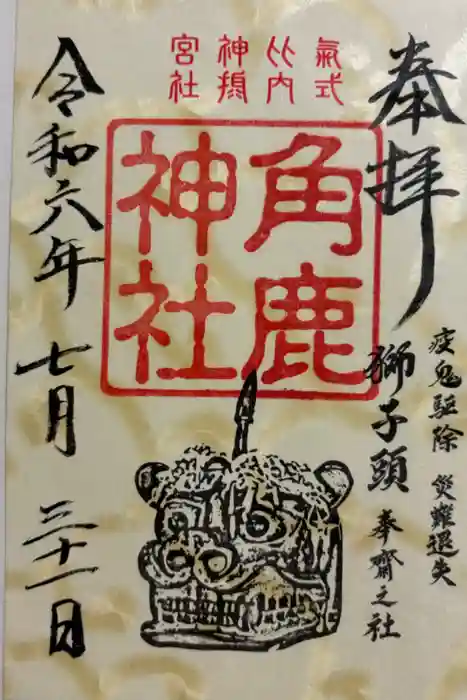 奉拝
疫鬼駆除 災難退失
獅子頭 奉齋之社
氣式
比内
神拐
宮社
角鹿
神社
令和六年 七月 三十一日